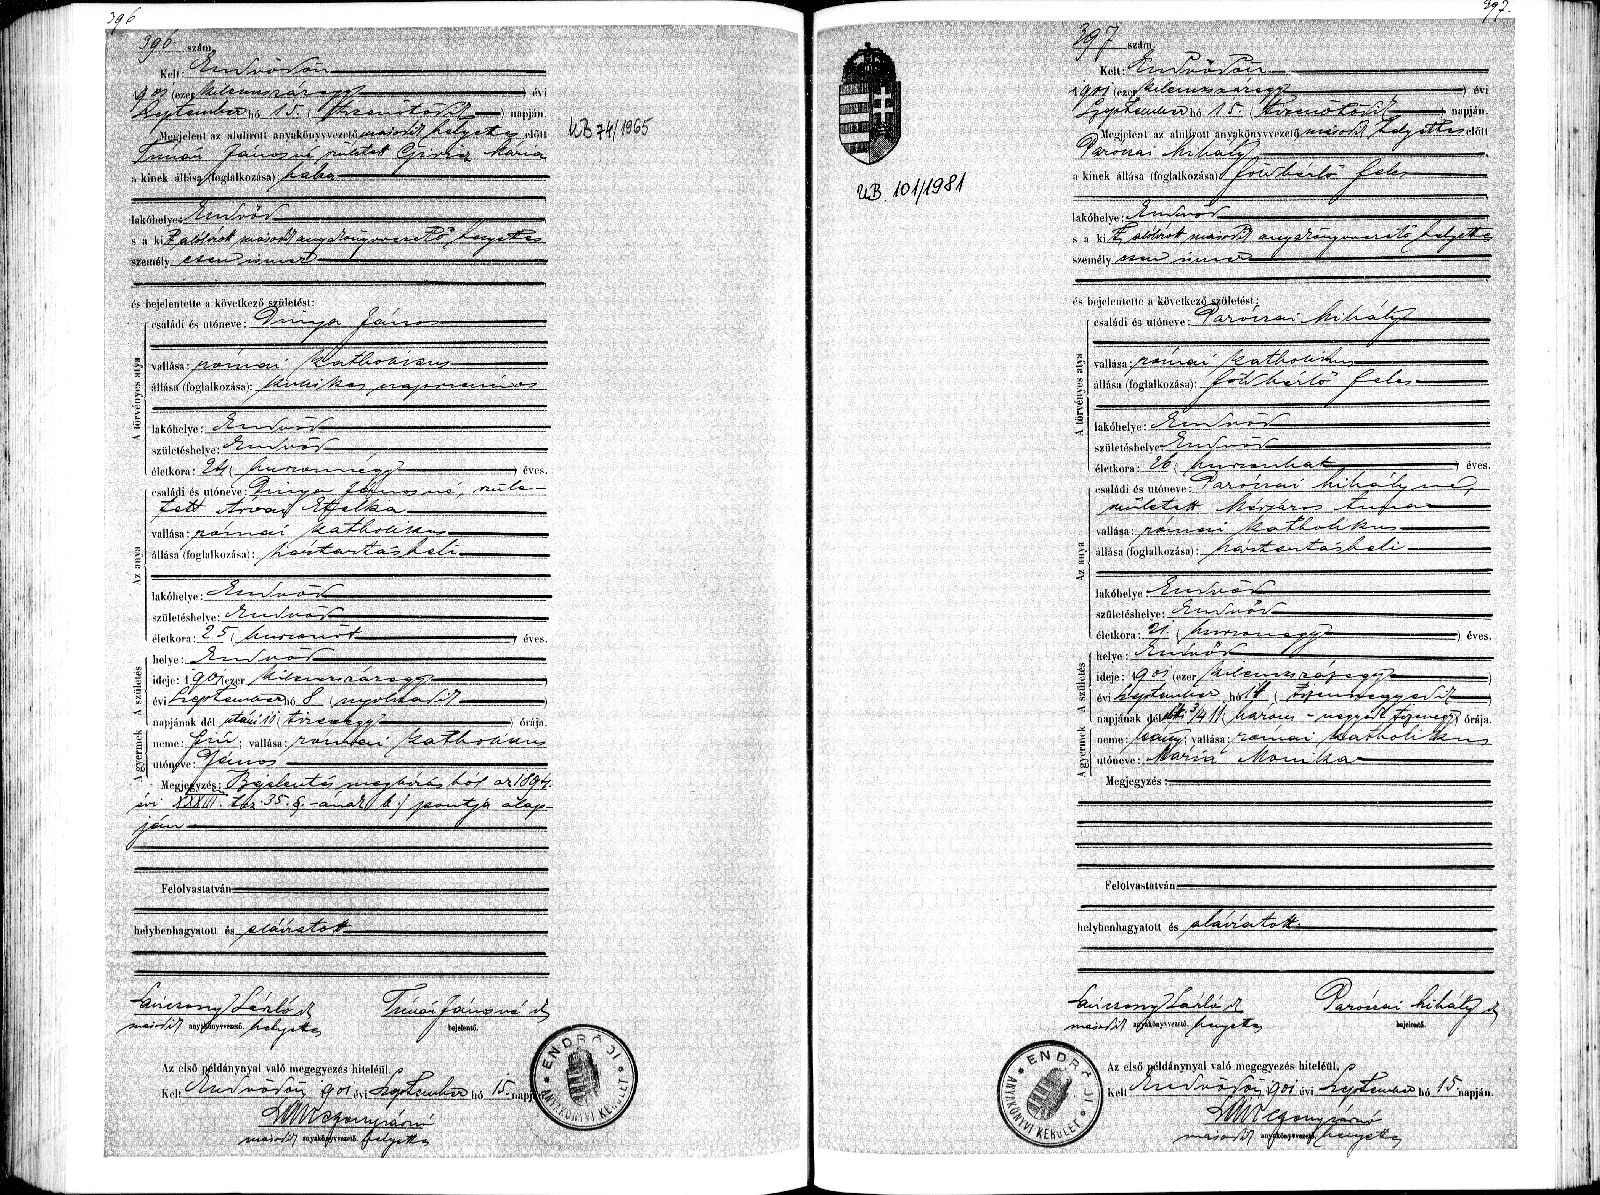 396
396 szám
Kelt: Endrődön
1901 (ezer kilenczszázegy) évi
Szeptember hó 15. (tizenötödik) napján.
Megjelent az alulirott anyakönyvvezető második helyettes előtt
Jánosné született Mária
a kinek állása (foglalkozása) bába
lakóhelye: Endrőd
s a kit alólirott második anyakönyvvezető helyettes
személyesen ismer
és bejelentette a következő születést:
A törvényes atya
családi és utóneve: Dinya János
vallása: római katholikus
állása (foglalkozása): kubikos napszámos
lakóhelye: Endrőd
születéshelye: Endrőd
életkora: 24 (huszonnégy) éves.
Az anya
családi és utóneve: Dinya Jánosné, szüle-
tett Arvai Etelka
vallása: római katholikus
állása (foglalkozása): háztartásbeli
lakóhelye: Endrőd
születéshelye: Endrőd
életkora: 25 (huszonöt) éves.
A születés
helye: Endrőd
ideje: 1901 (ezer kilenczszázegy)
évi Szeptember hó 8 (nyolczadik)
napjának dél utáni 11 (tizenegy) órája.
A gyermek
neme: fiú; vallása: római katholikus
utóneve: János
Megjegyzés: Bejelentés megbizásból az 1894.
évi XXXIII. t.cz. 35. §.-ának b.) pontja alap-
ján
Felolvastatván
helybenhagyatott és aláiratott
László Jánosné
második anyakönyvvezető helyettes bejelentő.
Az első példánynyal való megegyezés hiteléül.
Kelt Endrődön, 1901 évi Szeptember hó 15. napján
második anyakönyvvezető helyettes
ENDRŐDI ANYAKÖNYVI KERÜLET
UB 74/1965
397.
397 szám
Kelt: Endrődön
1901 (ezer kilenczszázegy) évi
Szeptember hó 15. (tizenötödik) napján.
Megjelent az alulirott anyakönyvvezető második helyettes előtt
Paróczai Mihály
a kinek állása (foglalkozása) földbérlő feles
lakóhelye: Endrőd
s a kit alólirott második anyakönyvvezető helyettes
személyesen ismer
és bejelentette a következő születést:
A törvényes atya
családi és utóneve: Paróczai Mihály
vallása: római katholikus
állása (foglalkozása): földbérlő feles
lakóhelye: Endrőd
születéshelye: Endrőd
életkora: 26 (huszonhat) éves.
Az anya
családi és utóneve: Paróczai Mihályné,
született Mészáros
vallása: római katholikus
állása (foglalkozása): háztartásbeli
lakóhelye: Endrőd
születéshelye: Endrőd
életkora: 21 (huszonegy) éves.
A születés
helye: Endrőd
ideje: 1901 (ezer kilenczszázegy)
évi Szeptember hó 14 (tizennegyedik)
napjának dél 3/4 11 (három-negyed tizenegy) órája.
A gyermek
neme: leány; vallása: római katholikus
utóneve: Mária Monika
Megjegyzés:
Felolvastatván
helybenhagyatott és aláiratott
László Paróczai Mihály
második anyakönyvvezető helyettes bejelentő.
Az első példánynyal való megegyezés hiteléül.
Kelt Endrődön, 1901 évi Szeptember hó 15 napján.
második anyakönyvvezető helyettes
ENDRŐDI ANYAKÖNYVI KERÜLET
UB. 101/1981